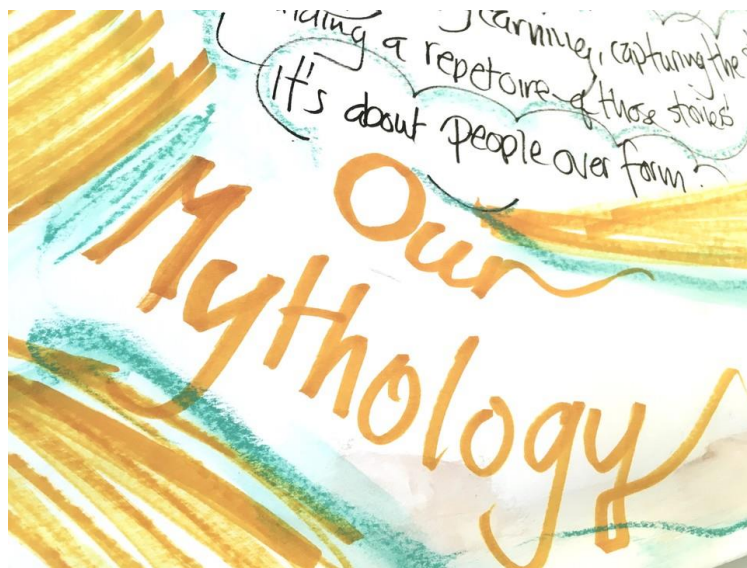 learning, capturing the
a repetoire of those stories
It's about people over form.
Our
Mythology